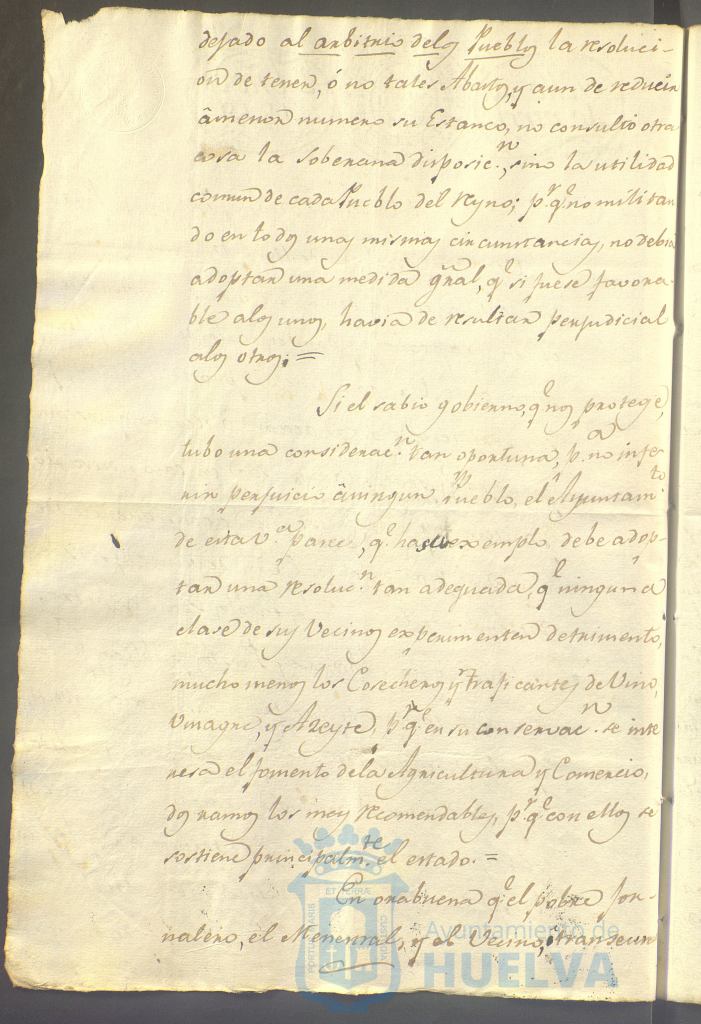 dejado al arbitrio delos Pueblos la resoluci-
on de tener, ó no tales Abastos, y aun de reducir
â menor numero su Estanco, no consultó otra
cosa la soberana disposic.n, sino la utilidad
comun de cada Pueblo del Reyno; p.r q.e no militan
do en todos unas mismas circunstancias, no debia
adoptar una medida gral, q.e si fuese favora-
ble alos unos, havia de resultar perjudicial
alos otros.=
Si el sabio gobierno, q.e nos protege,
tubo una considerac.n tan oportuna, p.a no infe-
rir perjuicio âningun Pueblo, el Ayuntam.to
de esta V.a parece, q.e ha su exemplo debe adop-
tar una resoluc.n tan adequada, q.e ninguna
clase de sus Vecinos experimenten detrimento,
mucho menos los Cosecheros y traficantes de Vino,
Vinagre, y Azeyte, p.r q.e en su conservac.n se inte
resa el fomento dela Agricultura y Comercio,
dos ramos los mas recomendables, p.r q.e con ellos se
sostiene principalm.te el estado.=
En orabuena q.e el pobre jor-
nalero, el Menestral, y el Vecino, transeun
Ayuntamiento de
HUELVA